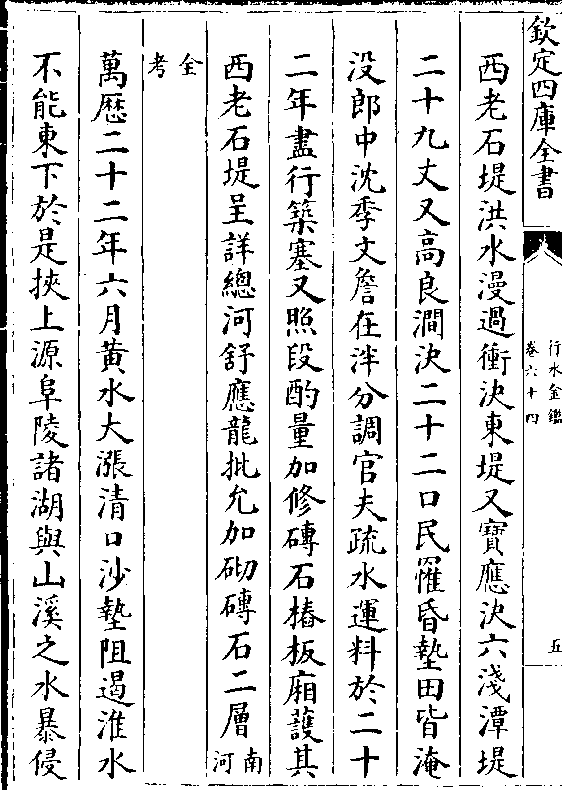 欽定四庫全書
行水金鑑
卷六十四
五
西老石堤洪水漫過衝決東堤又寶應決六淺潭堤
二十九丈又高良澗決二十二口民罹昏墊田皆淹
没郎中沈季文詹在泮分調官夫疏水運料於二十
二年盡行築塞又照段酌量加修磚石樁板廂護其
西老石堤呈詳總河舒應龍批允加砌磚石二層南河
全考
萬厯二十二年六月黄水大漲清口沙墊阻遏淮水
不能東下於是挾上源阜陵諸湖與山溪之水暴侵